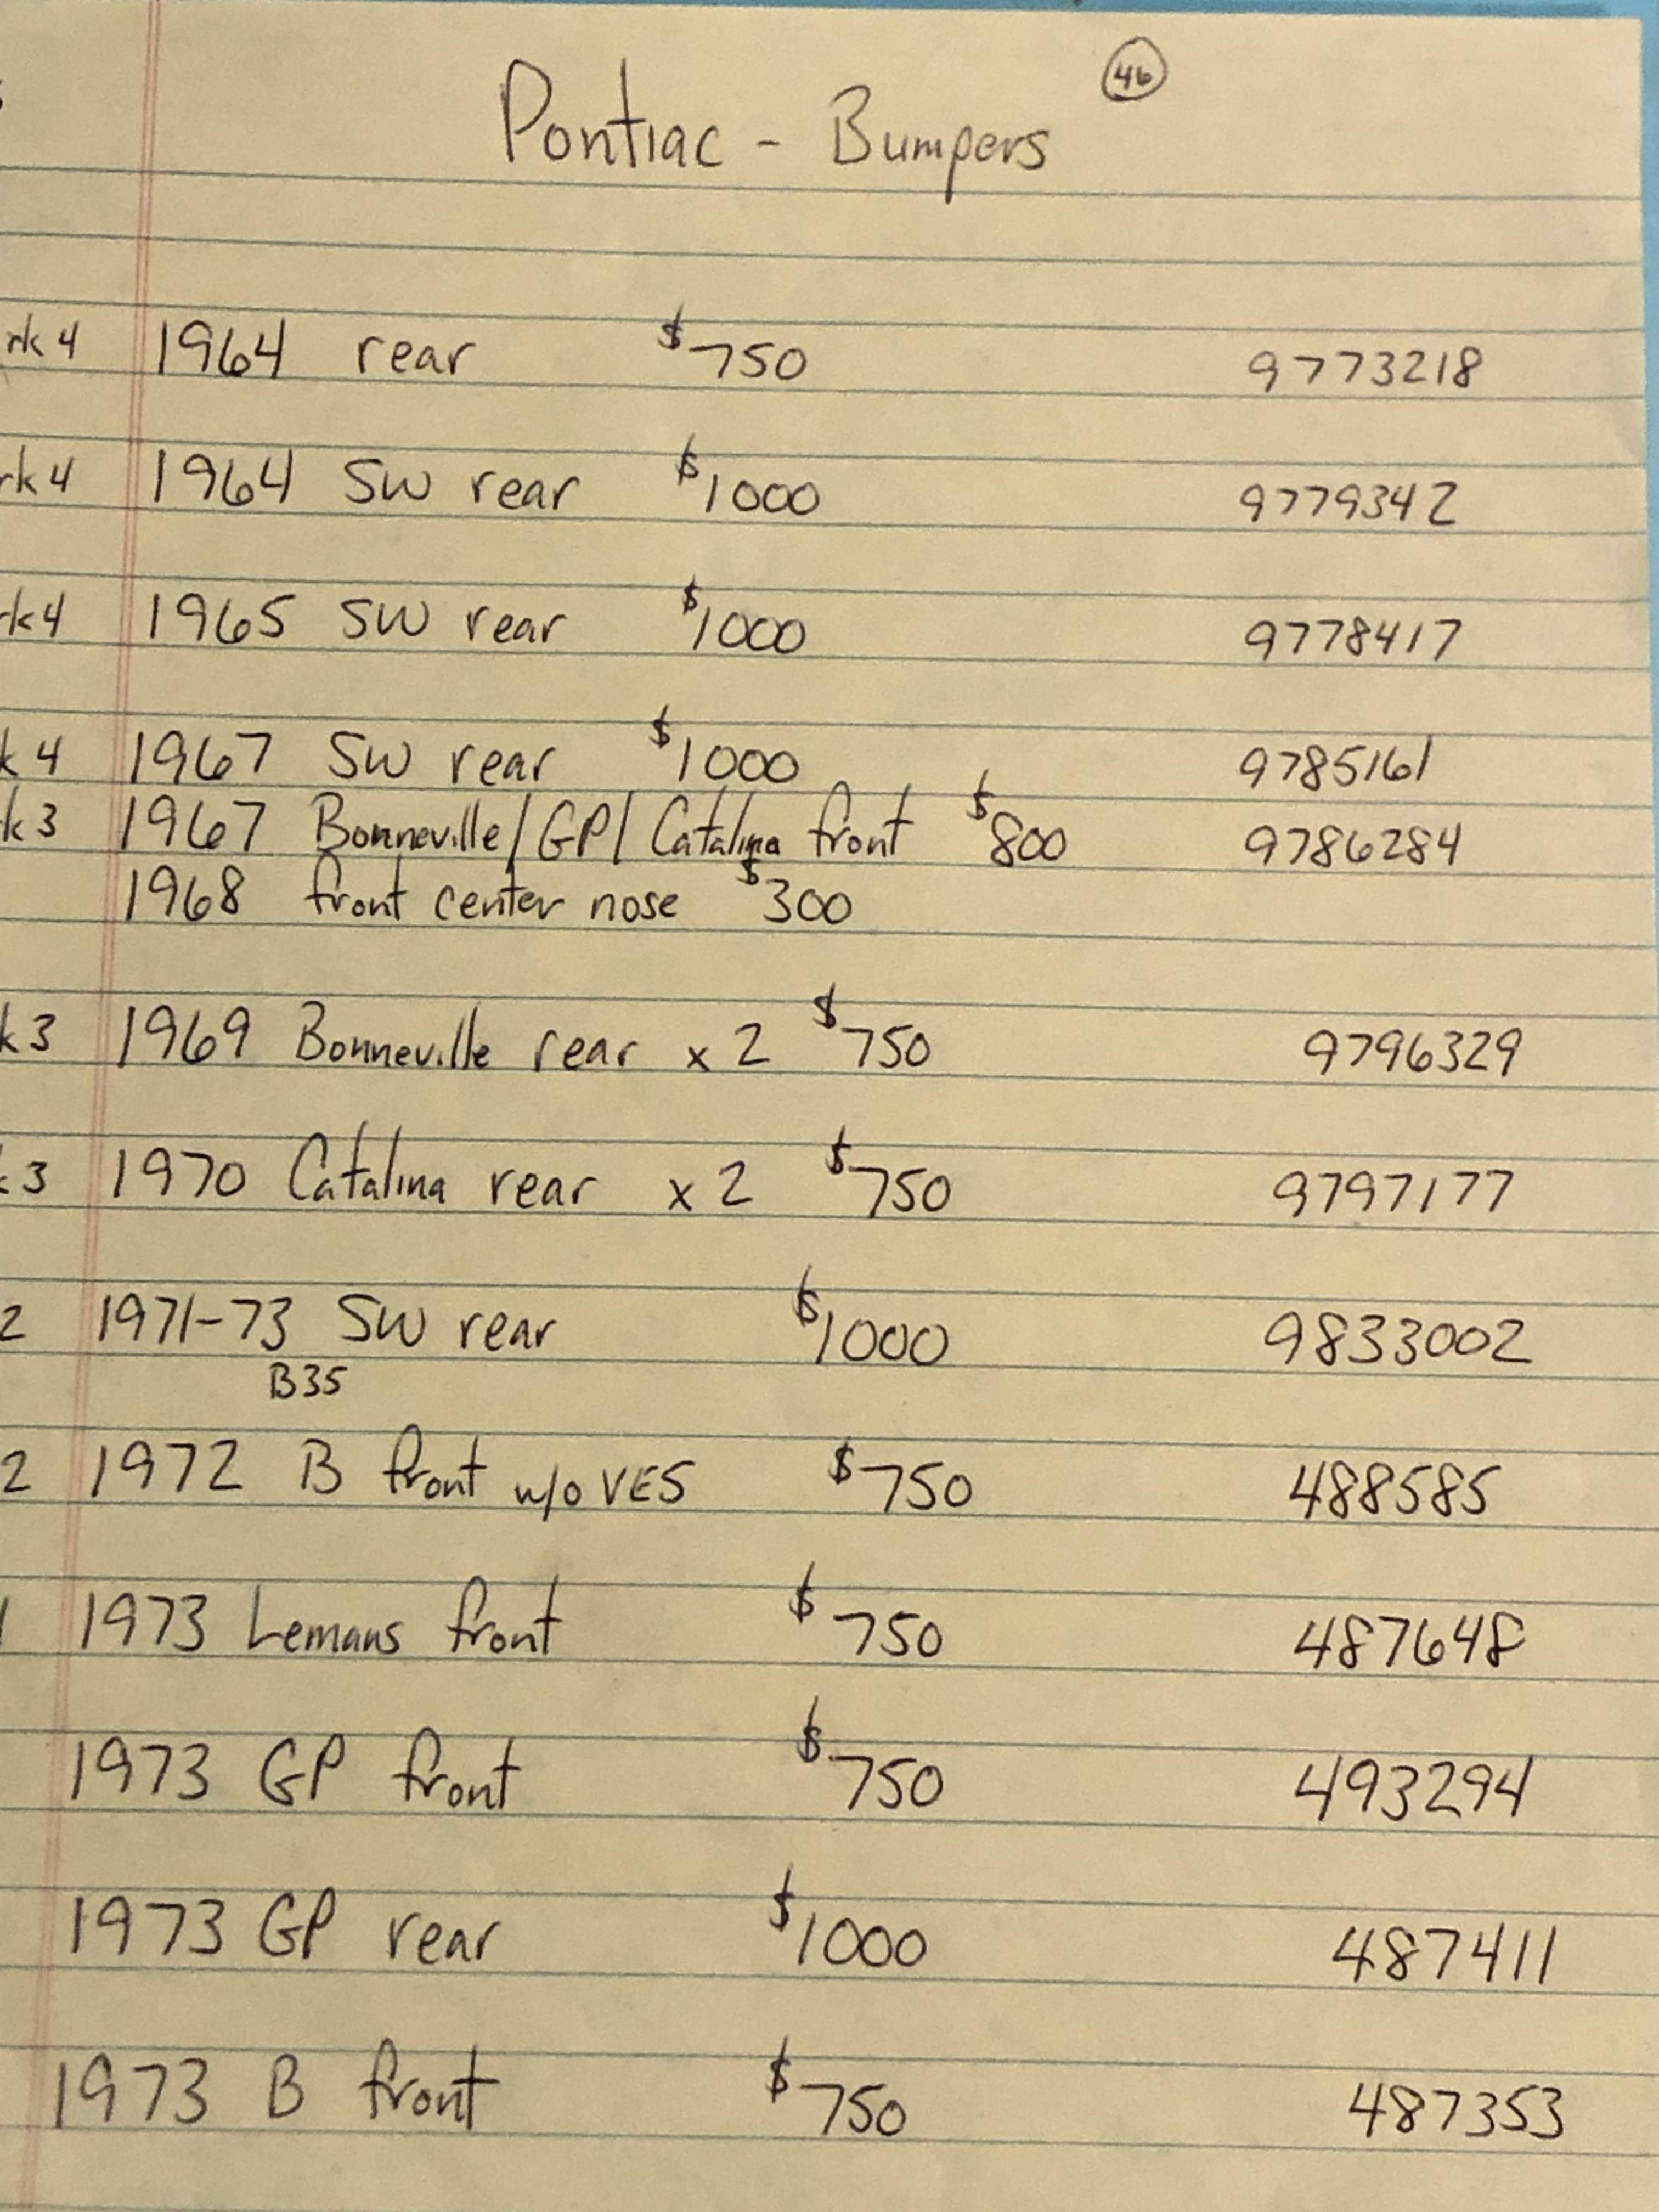 46
Pontiac - Bumpers
rk 4 1964 rear $750 9773218
rk 4 1964 SW rear $1000 9779342
rk 4 1965 SW rear $1000 9778417
k 4 1967 SW rear $1000 9785161
k 3 1967 Bonneville/GP/Catalina front $800 9786284
1968 front center nose $300
k 3 1969 Bonneville rear x 2 $750 9796329
3 1970 Catalina rear x 2 $750 9797177
2 1971-73 SW rear $1000 9833002
B35
2 1972 B front w/o VES $750 488585
1 1973 Lemans front $750 487648
1973 GP front $750 493294
1973 GP rear $1000 487411
1973 B front $750 487353